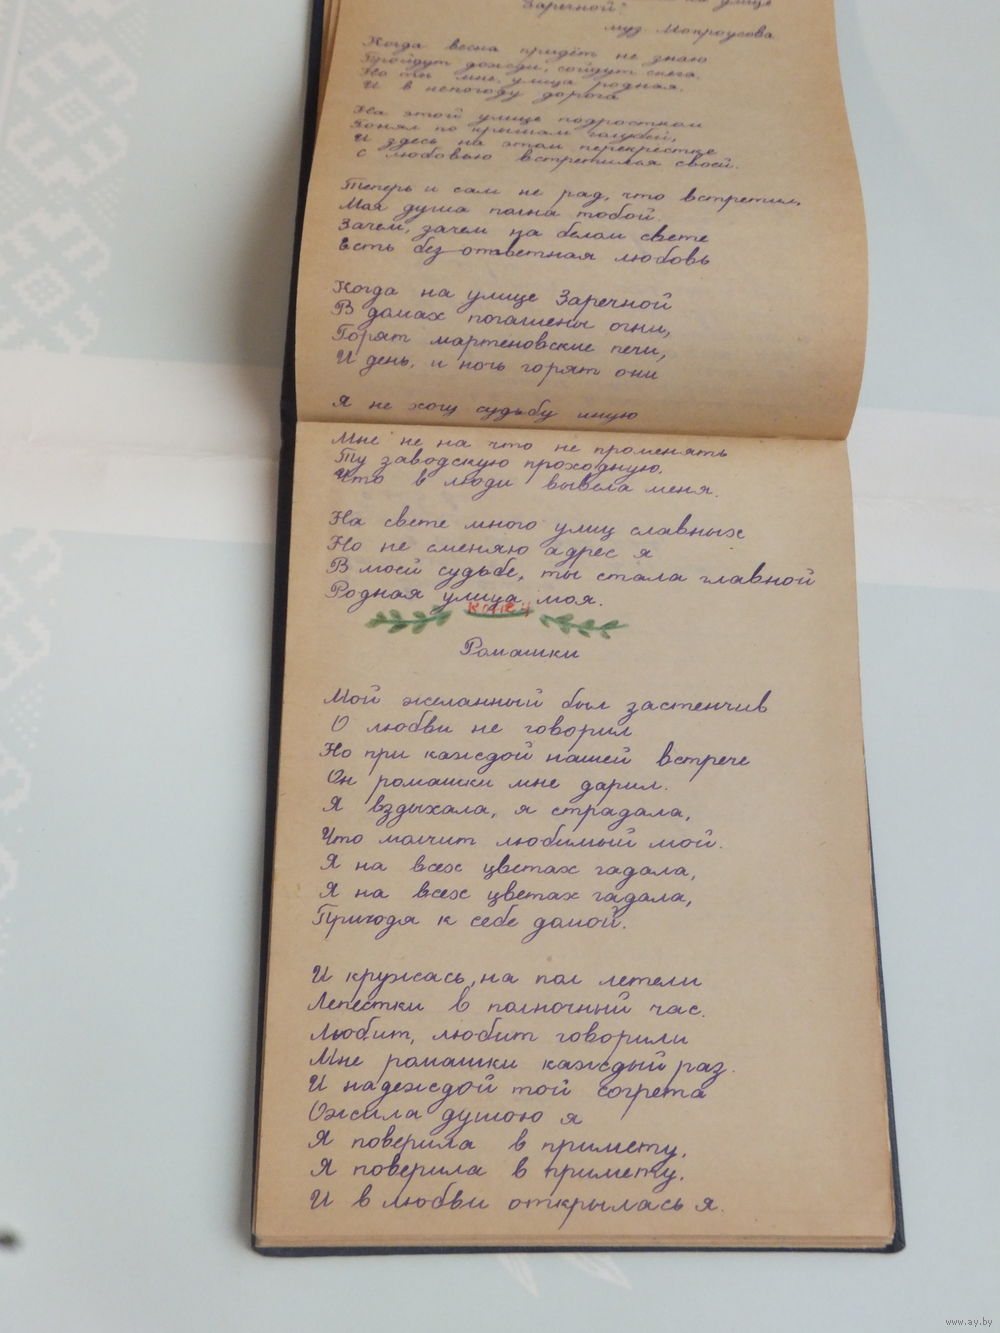 на улице
Заречной"
муз Мокроусова
Когда весна придёт не знаю
Пройдут дожди, сойдут снега.
Но ты мне, улица родная.
И в непогоду дорога
На этой улице подростком
Гонял по крышам голубей,
И здесь на этом перекрёстке
С любовью встретился своей.
Теперь и сам не рад, что встретил,
Моя душа полна тобой.
Зачем, зачем на белом свете
Есть без ответная любовь
Когда на улице Заречной
В домах погашены огни,
Горят мартеновские печи,
И день, и ночь горят они
Я не хощ судьбу иную
Мне не на что не променять
Ту заводскую проходную.
Что в люди вывела меня.
На свете много улиц славных
Но не сменяю адрес я
В моей судьбе, ты стала главной
Родная улица моя.
конец
Ромашки
Мой желанный был застенчив
О любви не говорил
Но при каждой нашей встрече
Он ромашки мне дарил.
Я вздыхала, я страдала,
Что молчит любимый мой.
Я на всех цветах гадала,
Я на всех цветах гадала,
Приходя к себе домой.
И кружась, на пол летели
Лепестки в полночный час.
Любит, любит говорили
Мне ромашки каждый раз.
И надеждой той согрета
Ожила душою я
Я поверила в примету,
Я поверила в примету.
И в любви открылась я.
www.ay.by